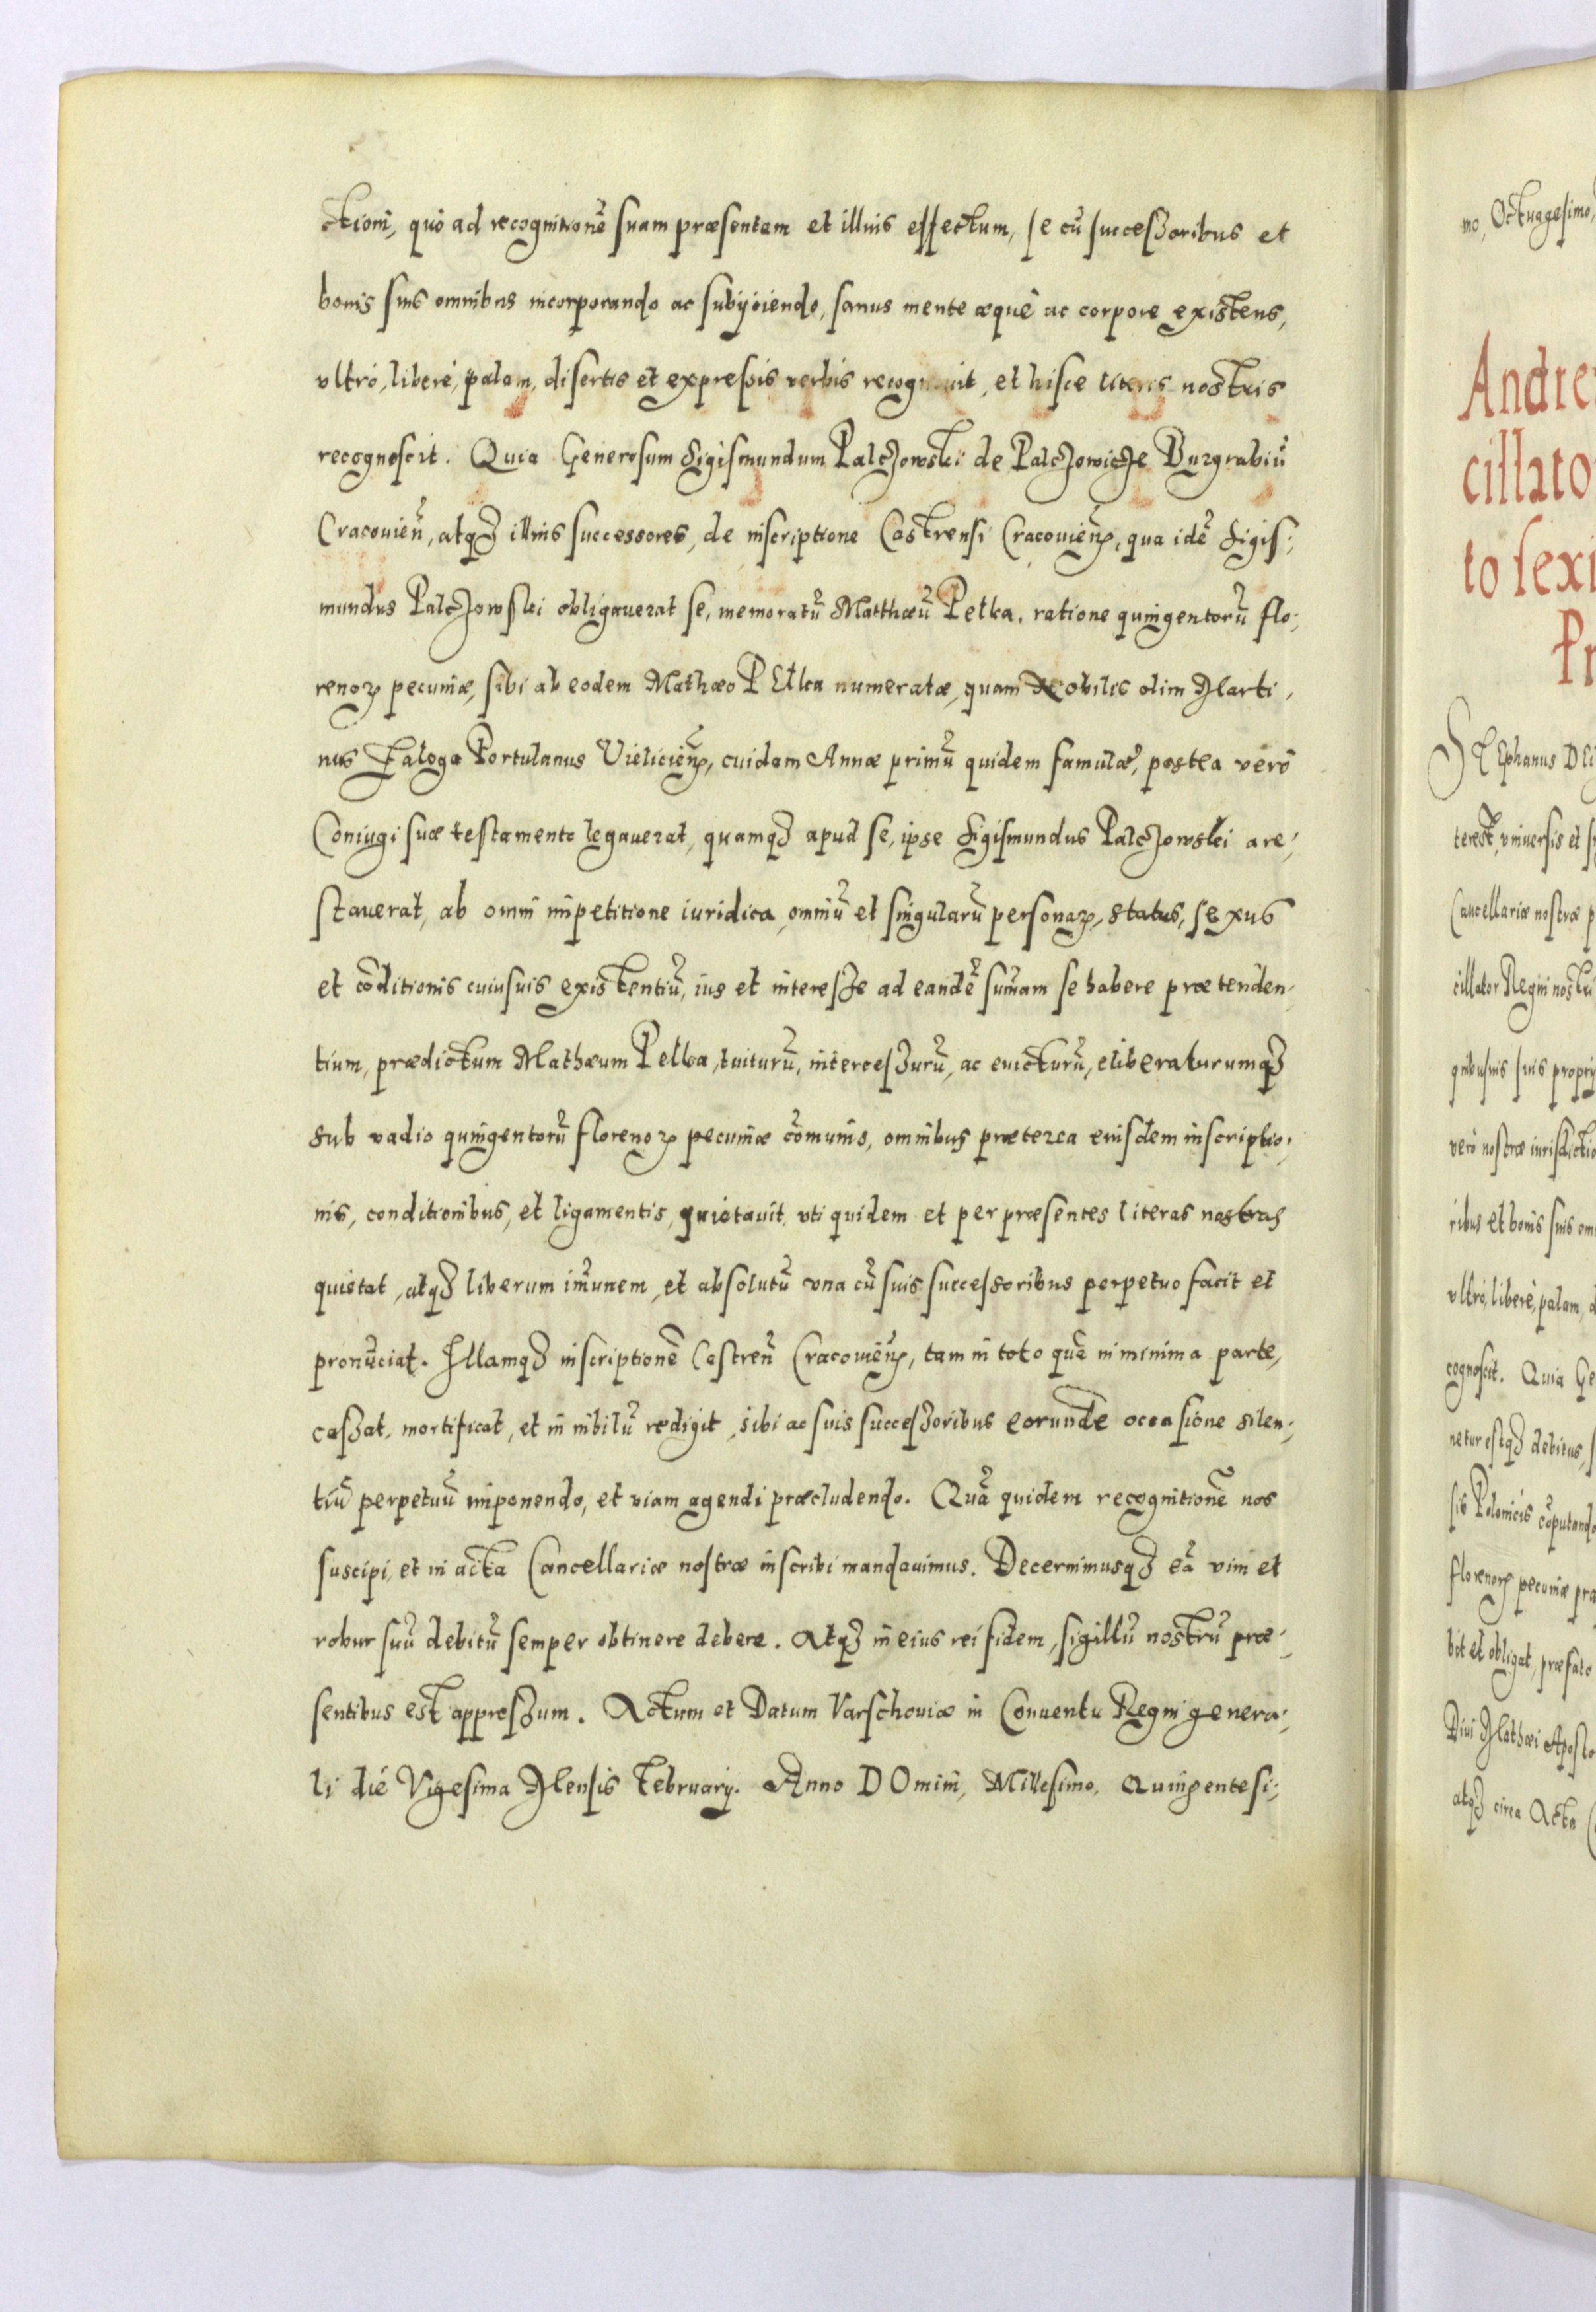 ctioni, quo ad recognitionē suam præsentem et illius effectum, se cū successoribus et
bonis suis omnibus incorporando ac subijciendo, sanus mente æquè ac corpore existens,
vltrò, liberè, palam, disertis et expressis verbis recognouit, et hisce literis nostris
recognoscit. Quia Generosum Sigismundum Palczowski de Palczowicze Burgrabiū
Cracouień, atqȝ illius successores, de inscriptione Castrensi Cracouieñ, qua idē Sigis-
mundus Palczowski obligauerat se, memoratū Matthæū Pełka, ratione quingentorū flo-
renoꝝ pecuniæ, sibi ab eodem Mathæo PEtka numeratæ, quam Nobilis olim Marti-
nus Faloga Portulanus Vielicieñ, cuidam Annæ primū quidem famulæ, postea verò
Coniugi suæ testamento legauerat, quamqȝ apud se, ipse Sigismundus Palczowski are-
stauerat, ab omni impetitione iuridica, omniū et singularū personaꝝ, status, sexus
et cōditionis cuiusuis existentiū, ius et interesse ad eandē sum̄am se habere prætenden-
tium, prædictum Mathæum Pełka, tuiturū, intercessurū, ac euicturū, eliberaturumqȝ
sub vadio quingentorū florenoꝝ pecuniæ cōmunis, omnibus præterea eiusdem inscriptio-
nis, conditionibus, et ligamentis, quietauit, vti quidem et per præsentes literas nostras
quietat, atqȝ liberum im̄unem, et absolutū vna cū suis successoribus perpetuo facit et
pronūciat. Illamqȝ inscriptionē Castreñ Cracouieñ, tam in toto quā in minima parte,
cassat, mortificat, et in nihilū redigit, sibi ac suis successoribus eorundē occasione silen-
tiū perpetuū imponendo, et viam agendi præcludendo. Quā quidem recognitionē nos
suscipi, et in acta Cancellariæ nostræ inscribi mandauimus. Decernimusqȝ eā vim et
robur suū debitū semper obtinere debere. Atqȝ in eius rei fidem, sigillū nostrū præ-
sentibus est appressum. Actum et Datum Varschouiæ in Conuentu Regni genera-
li die Vigesima Mensis Februarij. Anno DOmini, Millesimo, Quingentesi-
mo, Octuagesimo,
Andre
cillato
to sexi
STEphanus DEi
terest, vniuersis et
Cancellariæ nostræ
cillator Regni nostri
quibusuis suis proprij
verò nostræ iurisdictio
ribus et bonis suis om
vltrò, liberè, palam,
cognoscit. Quia Ge
netur estqȝ debitus,
sis Polonicis cōputando
florenoꝝ pecuniæ præ
bit et obligat, præfato
Diui Mathæi Aposto
atqȝ circa Acta